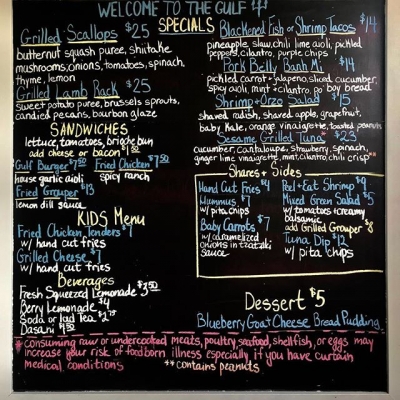 WELCOME TO THE GULF
SPECIALS
Grilled Scallops $25
butternut squash puree, shiitake
mushrooms, onions, tomatoes, spinach,
thyme, lemon
Grilled Lamb Rack $25
sweet potato puree, brussels sprouts,
candied pecans, bourbon glaze
SANDWICHES
lettuce, tomatoes, brioche bun
add cheese or bacon $1.50
Gulf Burger $9.50 Fried Chicken $7.50
house garlic aioli spicy ranch
Fried Grouper $13
lemon dill sauce
KIDS Menu
Fried Chicken Tenders $7
w/ hand cut fries
Grilled Cheese $7
w/ hand cut fries
Beverages
Fresh Squeezed Lemonade $3.50
Berry Lemonade $4
Soda or Iced Tea $2.75
Dasani $1.50
Blackened Fish or Shrimp Tacos $14
pineapple slaw, chili lime aioli, pickled
peppers, cilantro, purple chips
Pork Belly Banh Mi $14
pickled carrot + jalapeno, sliced cucumber,
spicy aioli, mint + cilantro, po' boy bread
Shrimp + Orzo Salad $15
shaved radish, shaved apple, grapefruit,
baby kale, orange vinaigrette, toasted peanuts
Sesame Grilled Tuna $25
cucumber, cantaloupe, strawberry, spinach,
ginger lime vinaigrette, mint, cilantro, chili crisp**
Shares + Sides
Hand Cut Fries $4
Hummus $7
w/ pita chips
Baby Carrots $7
w/ caramelized
onions in tzatziki
sauce
Peel + Eat Shrimp $9
Mixed Green Salad $5
w/ tomatoes + creamy
balsamic
add Grilled Grouper $8
Tuna Dip $12
w/ pita chips
Dessert $5
Blueberry Goat Cheese Bread Pudding
* consuming raw or undercooked meats, poultry, seafood, shellfish, or eggs may
increase your risk of foodborn illness especially if you have curtain
medical conditions **contains peanuts